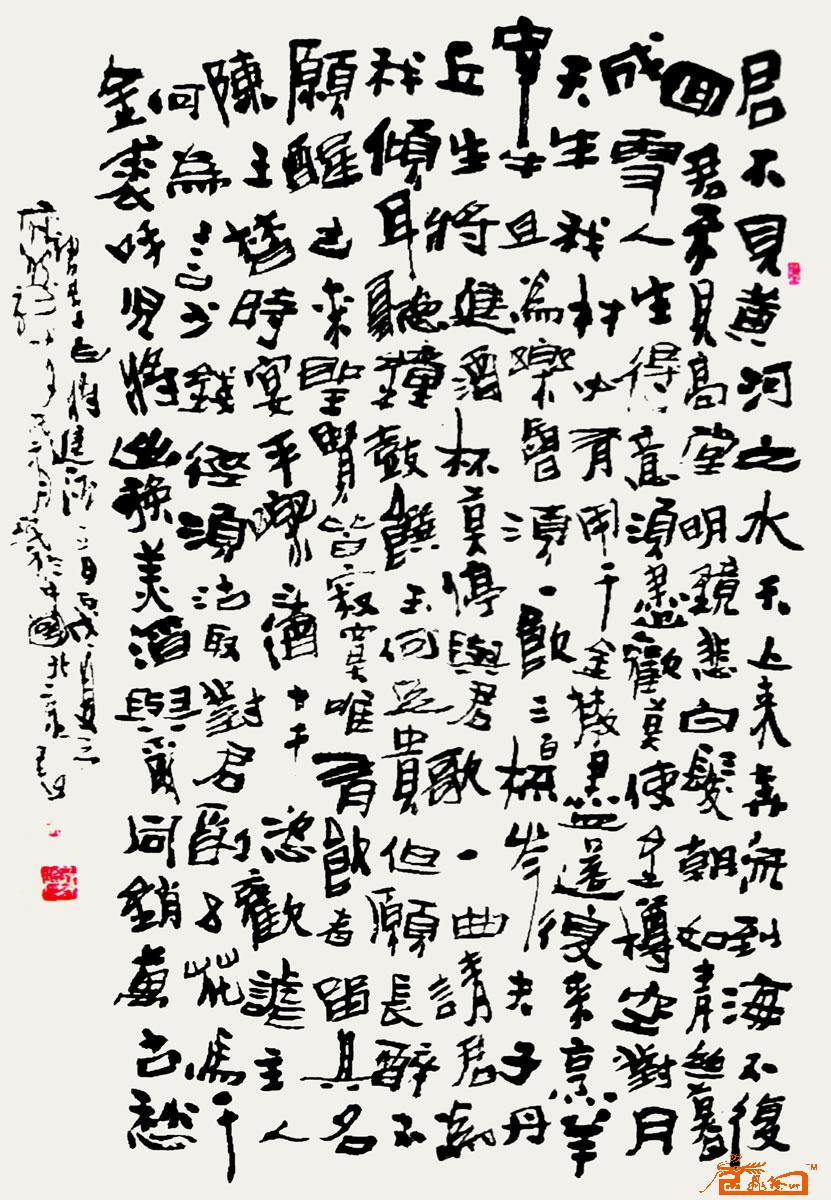 君不見黃河之水天上来奔流到海不復
回君不見高堂明鏡悲白髮朝如青絲暮
成雪人生得意須盡歡莫使金樽空對月
天生我材必有用千金散盡還復来烹羊
宰牛且為樂會須一飲三百杯岑夫子丹
丘生將進酒杯莫停與君歌一曲請君為
我傾耳聽鐘鼓饌玉何足貴但願長醉不
願醒古来聖賢皆寂寞唯有飲者留其名
陳王時宴平樂酒十千恣歡謔主人
何為言少錢徑須沽取對君酌五花馬千
金裘呼兒將出換美酒與爾同銷萬古愁
李白將進酒一首丙戌年
於中國北京